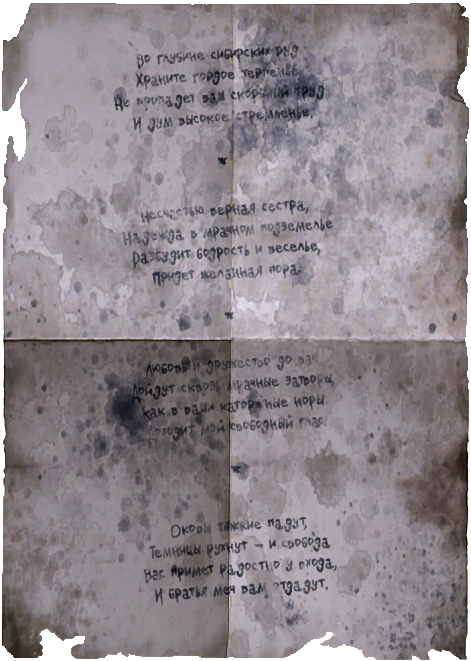 Во глубине сибирских руд
Храните гордое терпенье
Не пропадет ваш скорбный труд
И дум высокое стремленье.
*
Несчастью верная сестра,
Надежда в мрачном подземелье
Разбудит бодрость и веселье,
Придет желанная пора:
*
Любовь и дружество до вас
Дойдут сквозь мрачные затворы,
Как в ваши каторжные норы
Доходит мой свободный глас.
*
Оковы тяжкие падут,
Темницы рухнут – и свобода
Вас примет радостно у входа,
И братья меч вам отдадут.